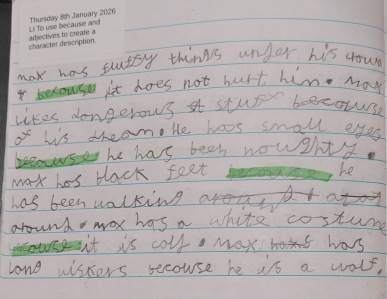 Thursday 8th January 2026
LI To use because and
adjectives to create a
character description.
max has fluffy things under his
because it does not hurt him. Max
likes dangerous stuff becouse
of his dream. He has small eyes
because he has been noughty.
max has black feet because he
has been walking around
around. max has a white costume
becouse it is cold. Max has
long wiskers becouse he is a wolf.